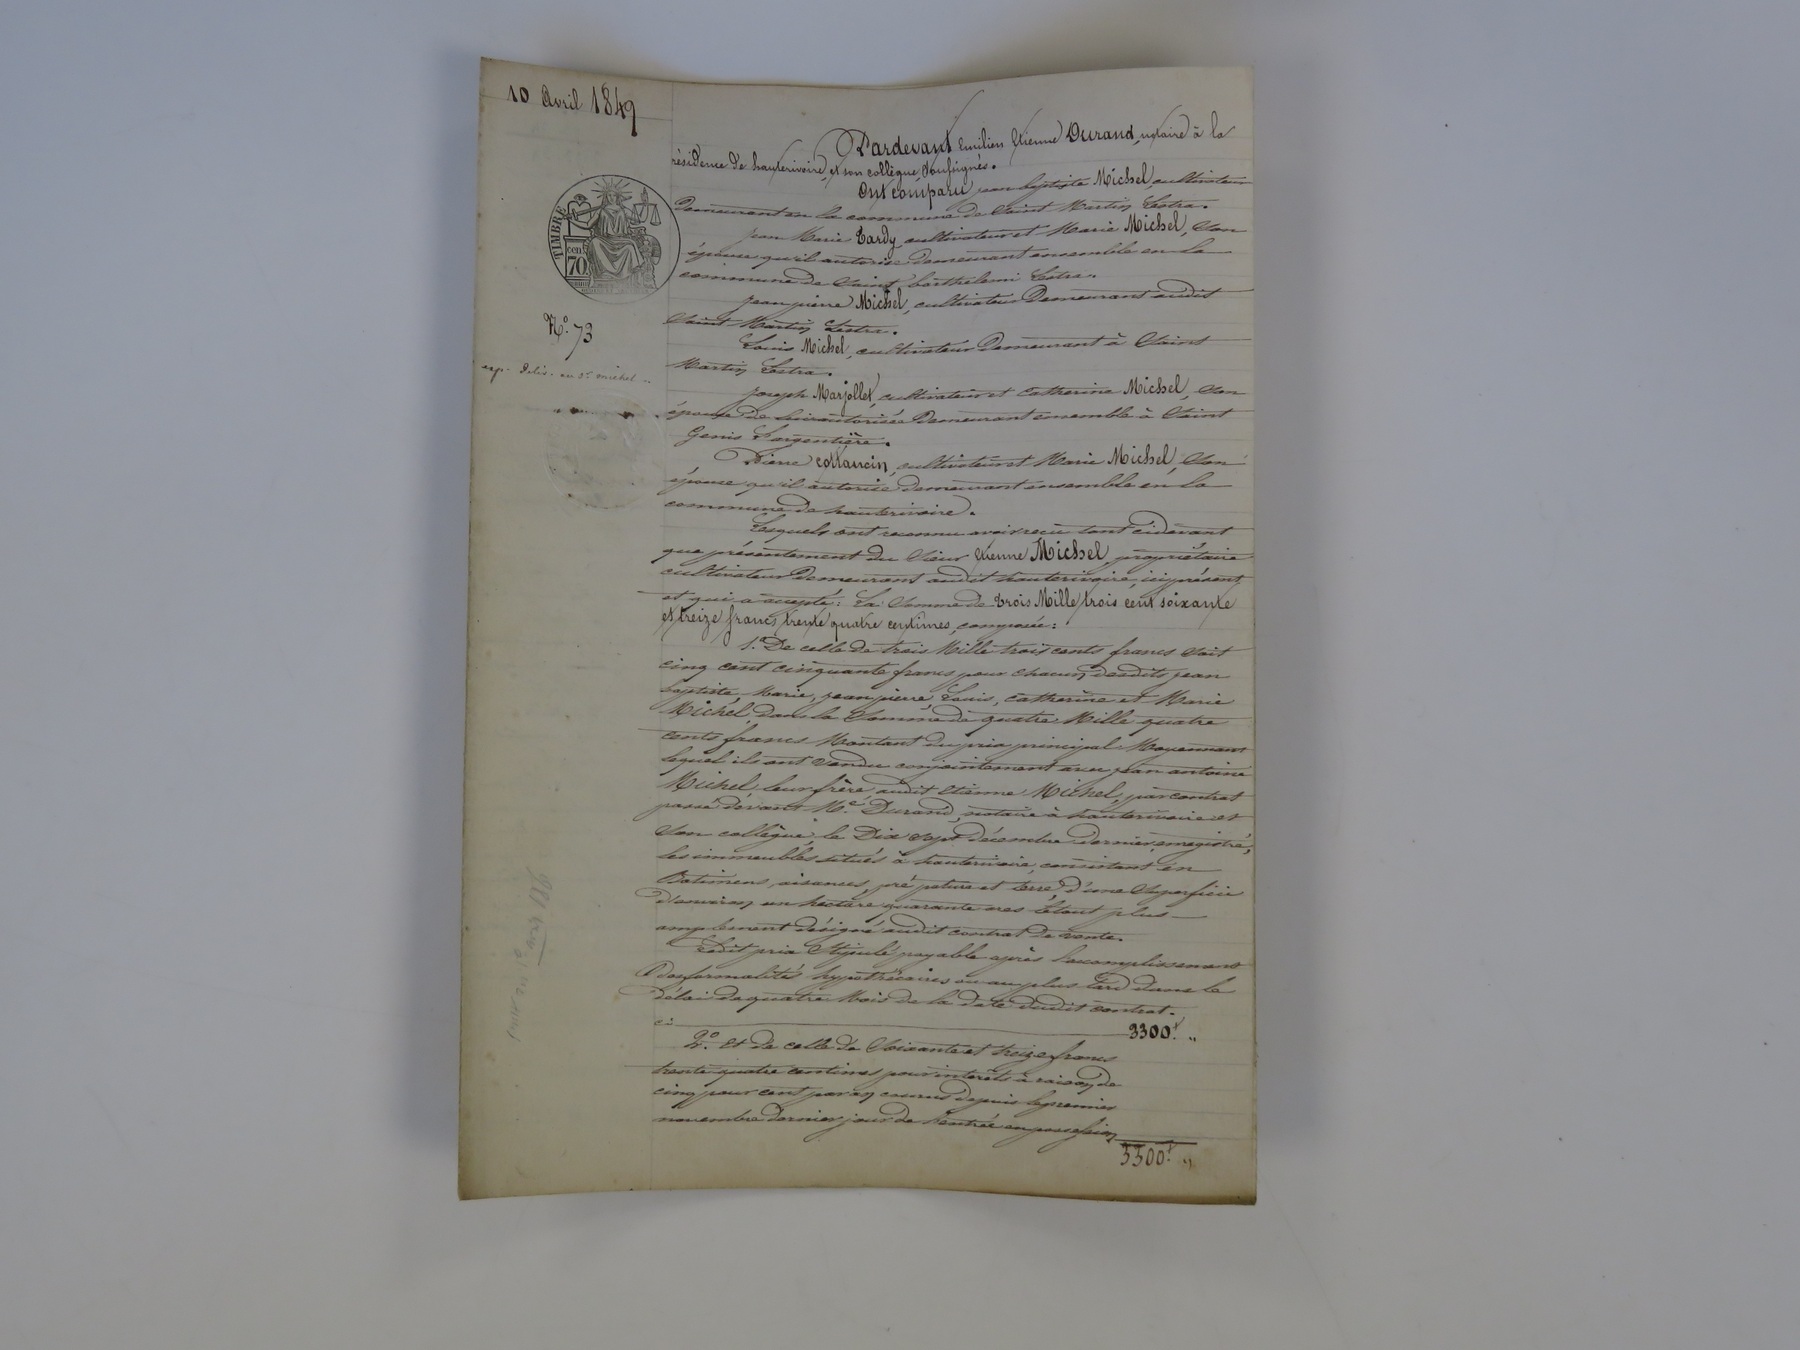 10 Avril 1849
TIMBRE
cen
70
N.° 73
exp. déliv. au s.r michel
Pardevant Emilien Etienne Durand, notaire à la
résidence de hauterivoire, et son collègue, soussignés.
Ont comparu jean baptiste Michel, cultivateur
Demeurant en la commune de Saint Martin Lestra.
jean Marie Tardy cultivateur et Marie Michel, Son
épouse qu'il autorise Demeurant ensemble en la
commune de Saint barthelemi Lestra.
jean pierre Michel, cultivateur Demeurant audit
Saint Martin Lestra.
Louis Michel, cultivateur Demeurant à Saint
Martin Lestra.
joseph Marjollet, cultivateur et Catherine Michel, Son
épouse de lui autorisée Demeurant ensemble à Saint
Genis L'argentière.
Pierre cottancin, cultivateur et Marie Michel, Son
épouse qu'il autorise Demeurant ensemble en la
commune de hauterivoire.
Lesquels ont reconnu avoir reçu tant cidevant
que présentement du Sieur Etienne Michel, propriétaire
cultivateur Demeurant audit hauterivoire, ici présent
et qui a accepté: La Somme de trois Mille trois cent soixante
et treize francs trente quatre centimes, composée:
1.° De celle de trois Mille trois cents francs Soit
cinq cent cinquante francs pour chacun desdits jean
baptiste, Marie, jean pierre, Louis, Catherine et Marie
Michel, dans la Somme de quatre Mille quatre
cents francs Montant du prix principal Moyennant
lequel ils ont vendu conjointement avec jean antoine
Michel leur frère, audit Etienne Michel, par contrat
passé devant M.e Durand, notaire à hauterivoire et
Son collègue, le Dix Sept décembre dernier, enregistré,
les immeubles situés à hauterivoire, consistant en
Batimens, aisances, pré pature et terre, d'une Superficie
d'environ un hectare quarante ares Le tout plus
amplement désigné audit contrat de vente.
Ledit prix Stipulé payable après l'accomplissement
Des formalités hypothécaires ou au plus tard dans le
Délai de quatre Mois de la date dudit contrat.
ci 3300.f "
2.° Et de celle de Soixante et treize francs
trente quatre centimes pour intérêts à raison de
cinq pour cent par an courus depuis le premier
novembre dernier jour de l'entrée en possession
3300.f "